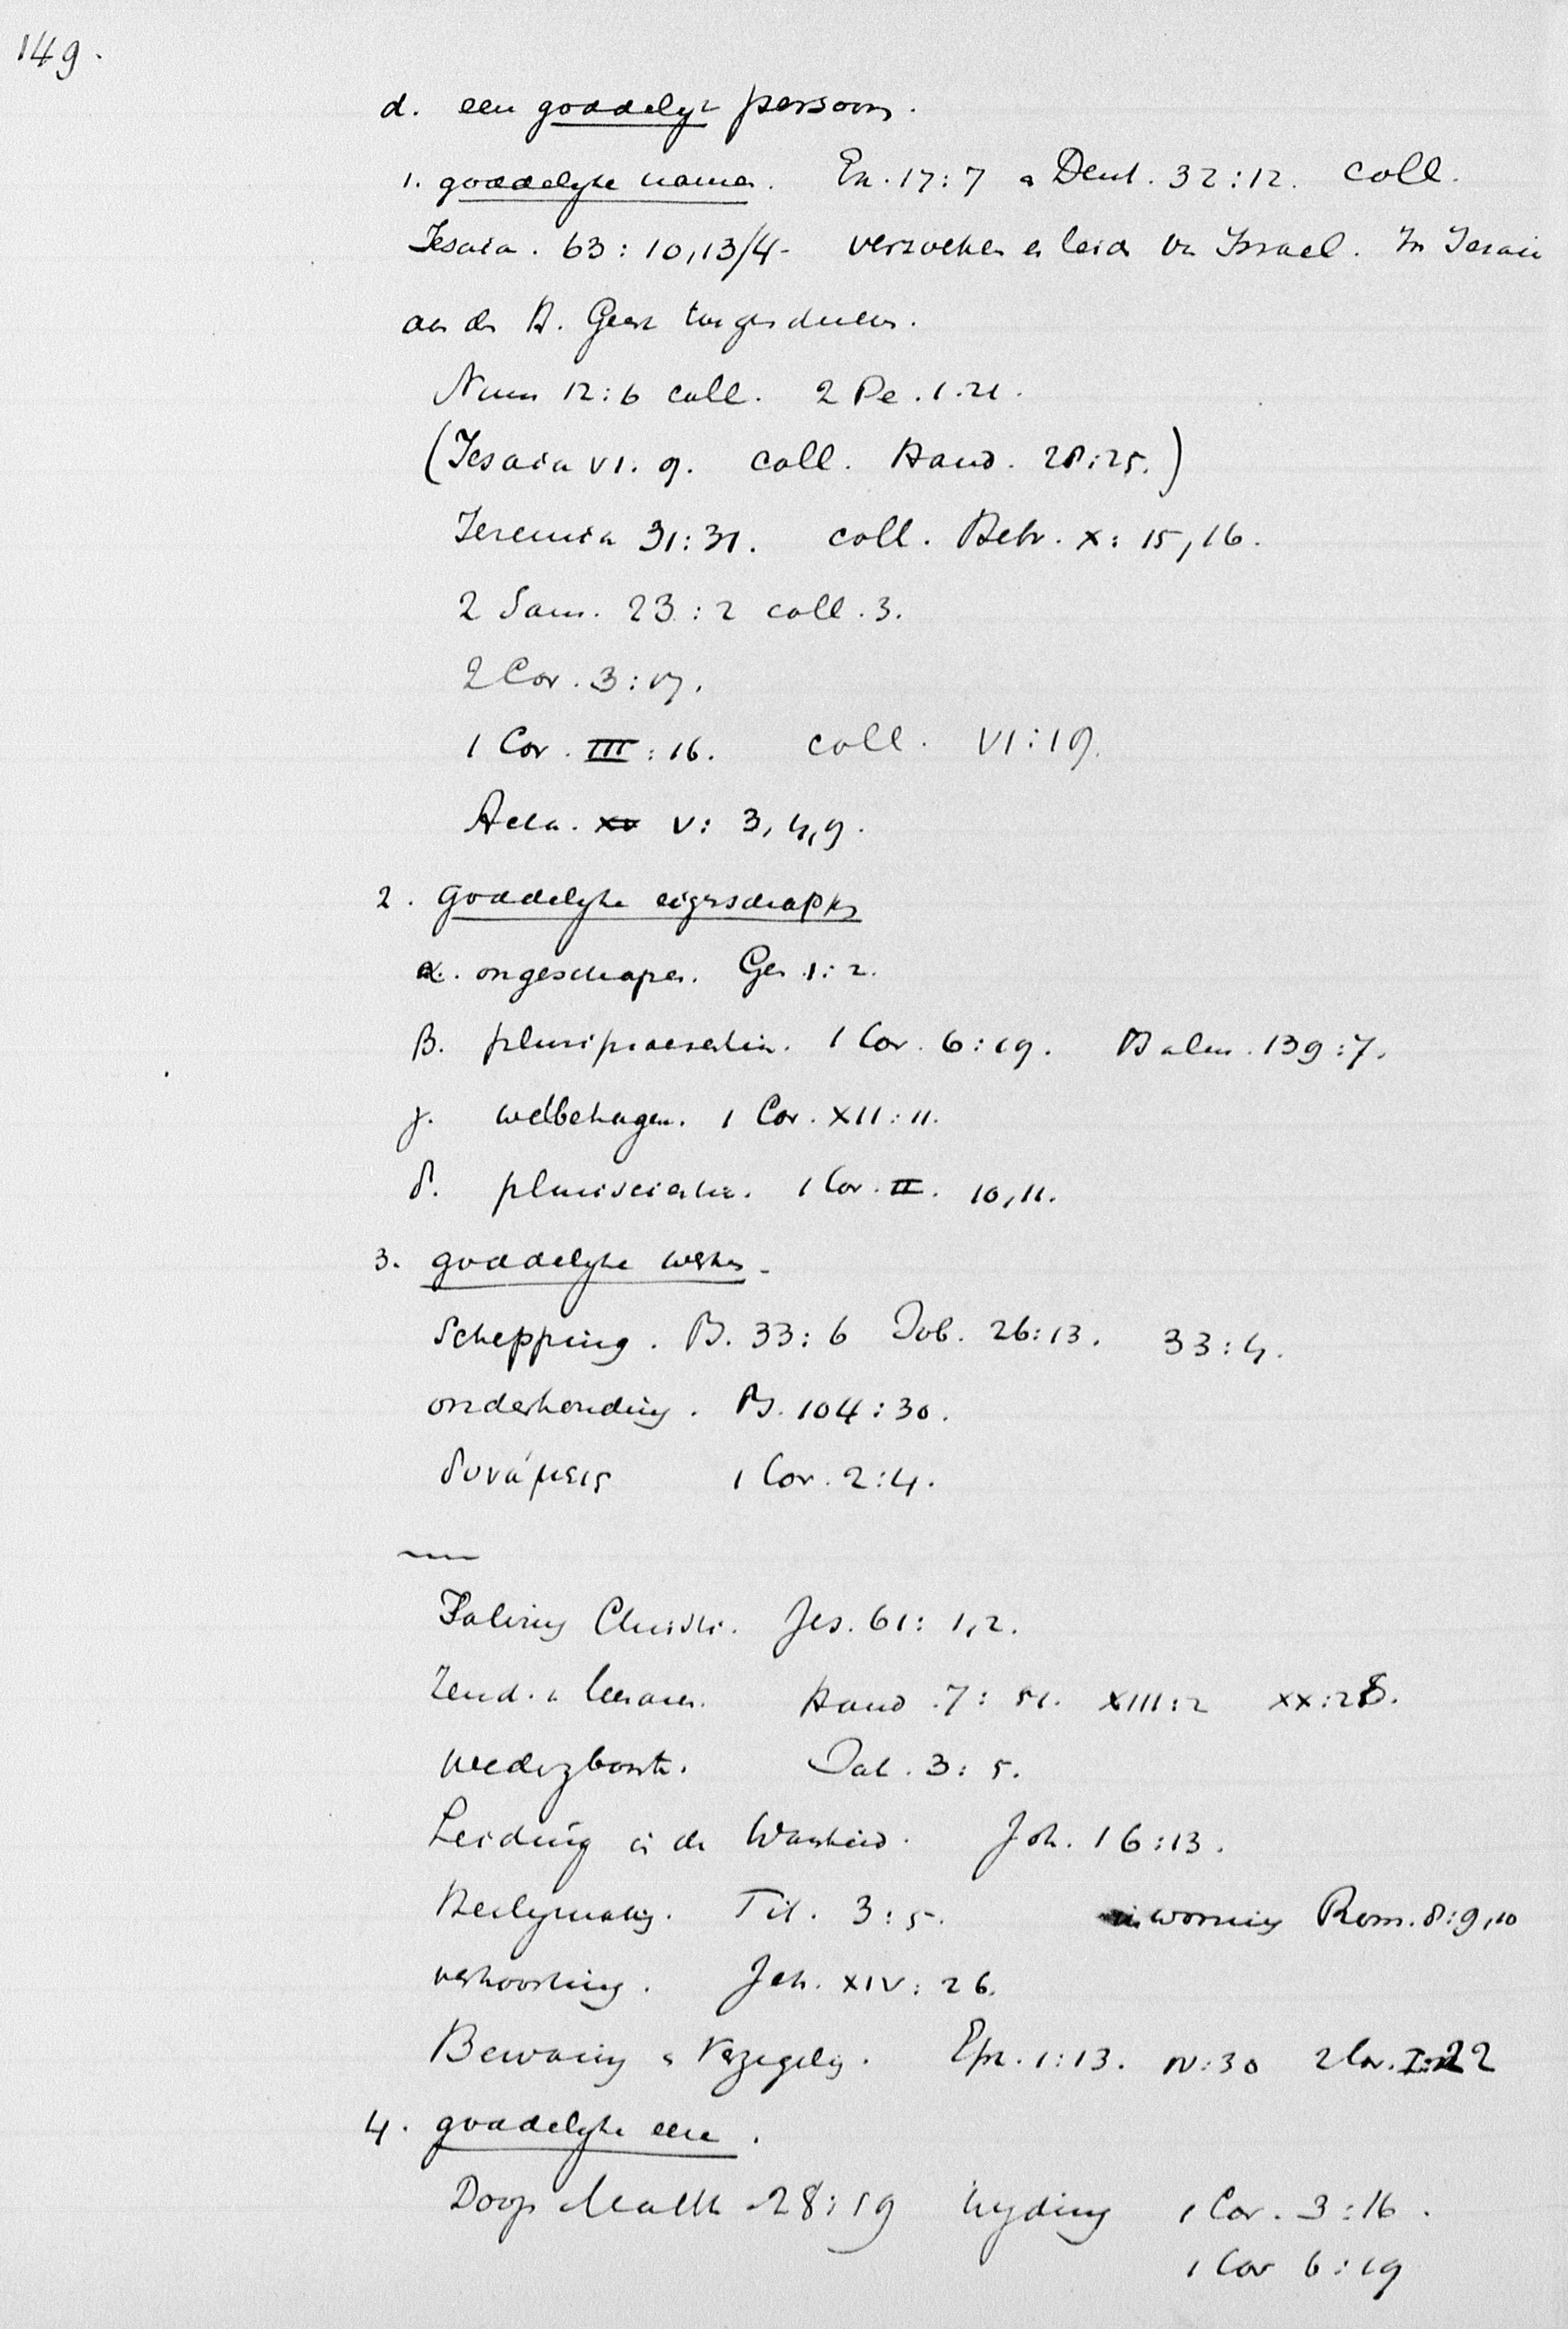 149.
d. een goddelyk persoon.
1. goddelyke namen. Ex. 17:7 en Deut. 32:12. coll.
Jesaia. 63: 10,13/4- verzoeken en leid. van Israel. In Jesaia
aan den H. Geest toegeschreven.
Num 12:6 coll. 2 Pe. 1.21.
(Jesaia VI. 9. coll. Hand. 28:25.)
Jeremia 31:31. coll. Hebr. X: 15,16.
2 Sam. 23:2 coll. 3.
2 Cor. 3:17.
1 Cor. III: 16. coll. VI:19.
Acta. V: 3, 4, 9.
2. goddelyke eigenschappen
α. ongeschapen. Gen 1:2.
β. pluripraesentia. 1 Cor. 6:19. Psalm. 139:7.
γ. welbehagen. 1 Cor. XII: 11.
δ. pluriscientia. 1 Cor. II. 10,11.
3. goddelyke werken.
Schepping. Ps. 33:6 Job. 26:13. 33:4.
onderhouding. Ps. 104:30.
δυνάμεις 1 Cor. 2:4.
Zalving Christi. Jes. 61: 1,2.
Zend. v. leeraren. Hand. 7: 51. XIII:2 XX:28.
wedergeboorte. Joh. 3: 5.
Leiding in de Waarheid. Joh. 16:13.
Heiligmaking. Tit. 3:5. inwoning Rom. 8:9,10
vertroosting. Joh. XIV: 26.
Bewaring en Verzegeling. Eph. 1:13. IV:30 2 Cor. I:22
4. goddelyke eere.
Doop Matth 28:19 wyding 1 Cor. 3:16.
1 Cor 6:19